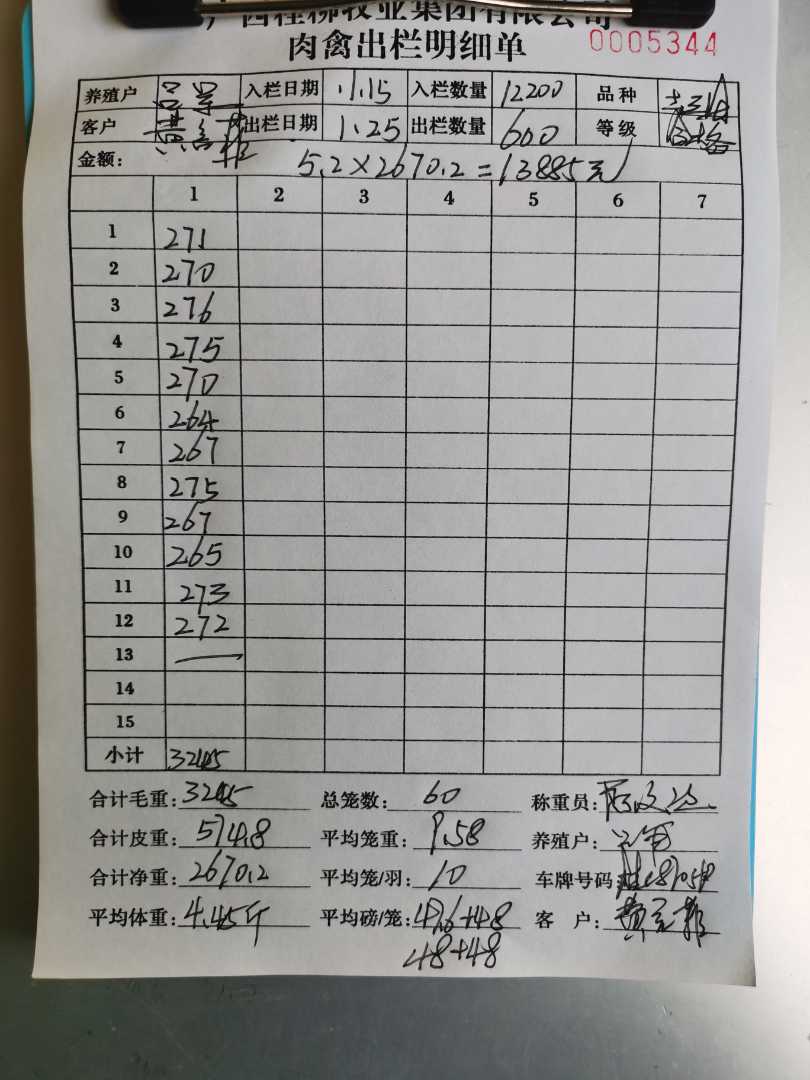 广西桂柳牧业集团有限公司
肉禽出栏明细单 0005344
养殖户 入栏日期 11.15 入栏数量 12200 品种
客户 出栏日期 1.25 出栏数量 600 等级
金额: 5.2×2670.2=13885元
1 2 3 4 5 6 7
1 271
2 270
3 276
4 275
5 270
6 264
7 267
8 275
9 267
10 265
11 273
12 272
13 —
14
15
小计 3245
合计毛重: 3245 总笼数: 60 称重员:
合计皮重: 574.8 平均笼重: 9.58 养殖户:
合计净重: 2670.2 平均笼/羽: 10 车牌号码:
平均体重: 4.45斤 平均磅/笼: 47.6+48 客 户:
48+48